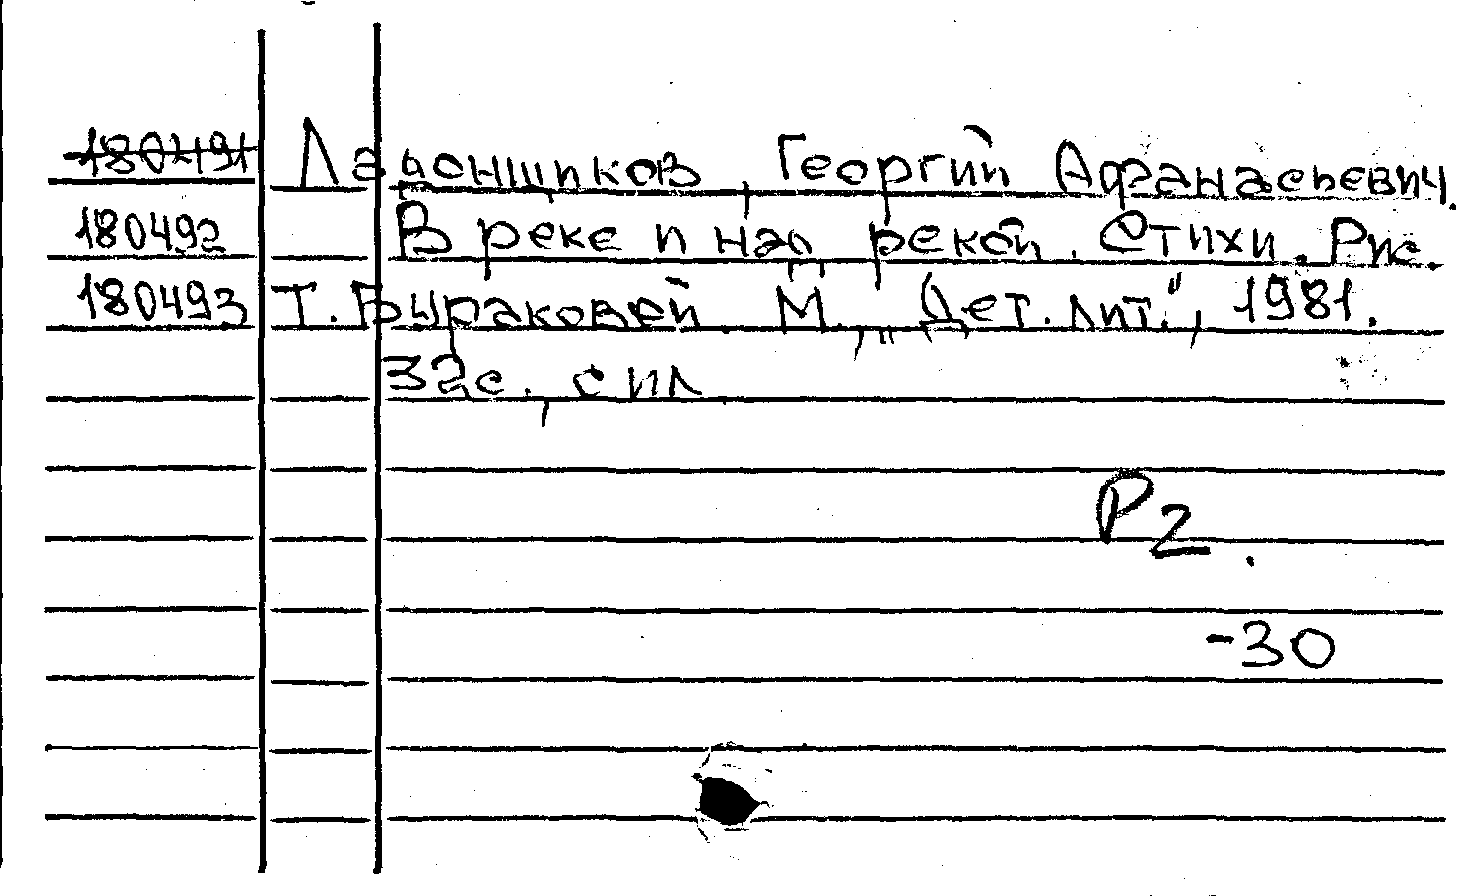 180491 Ладонщиков, Георгий Афанасьевич.
180492 В реке и над рекой. Стихи. Рис.
180493 Т. Бураковой. М., „Дет. лит.", 1981.
32с., с ил.
Р2.
-30